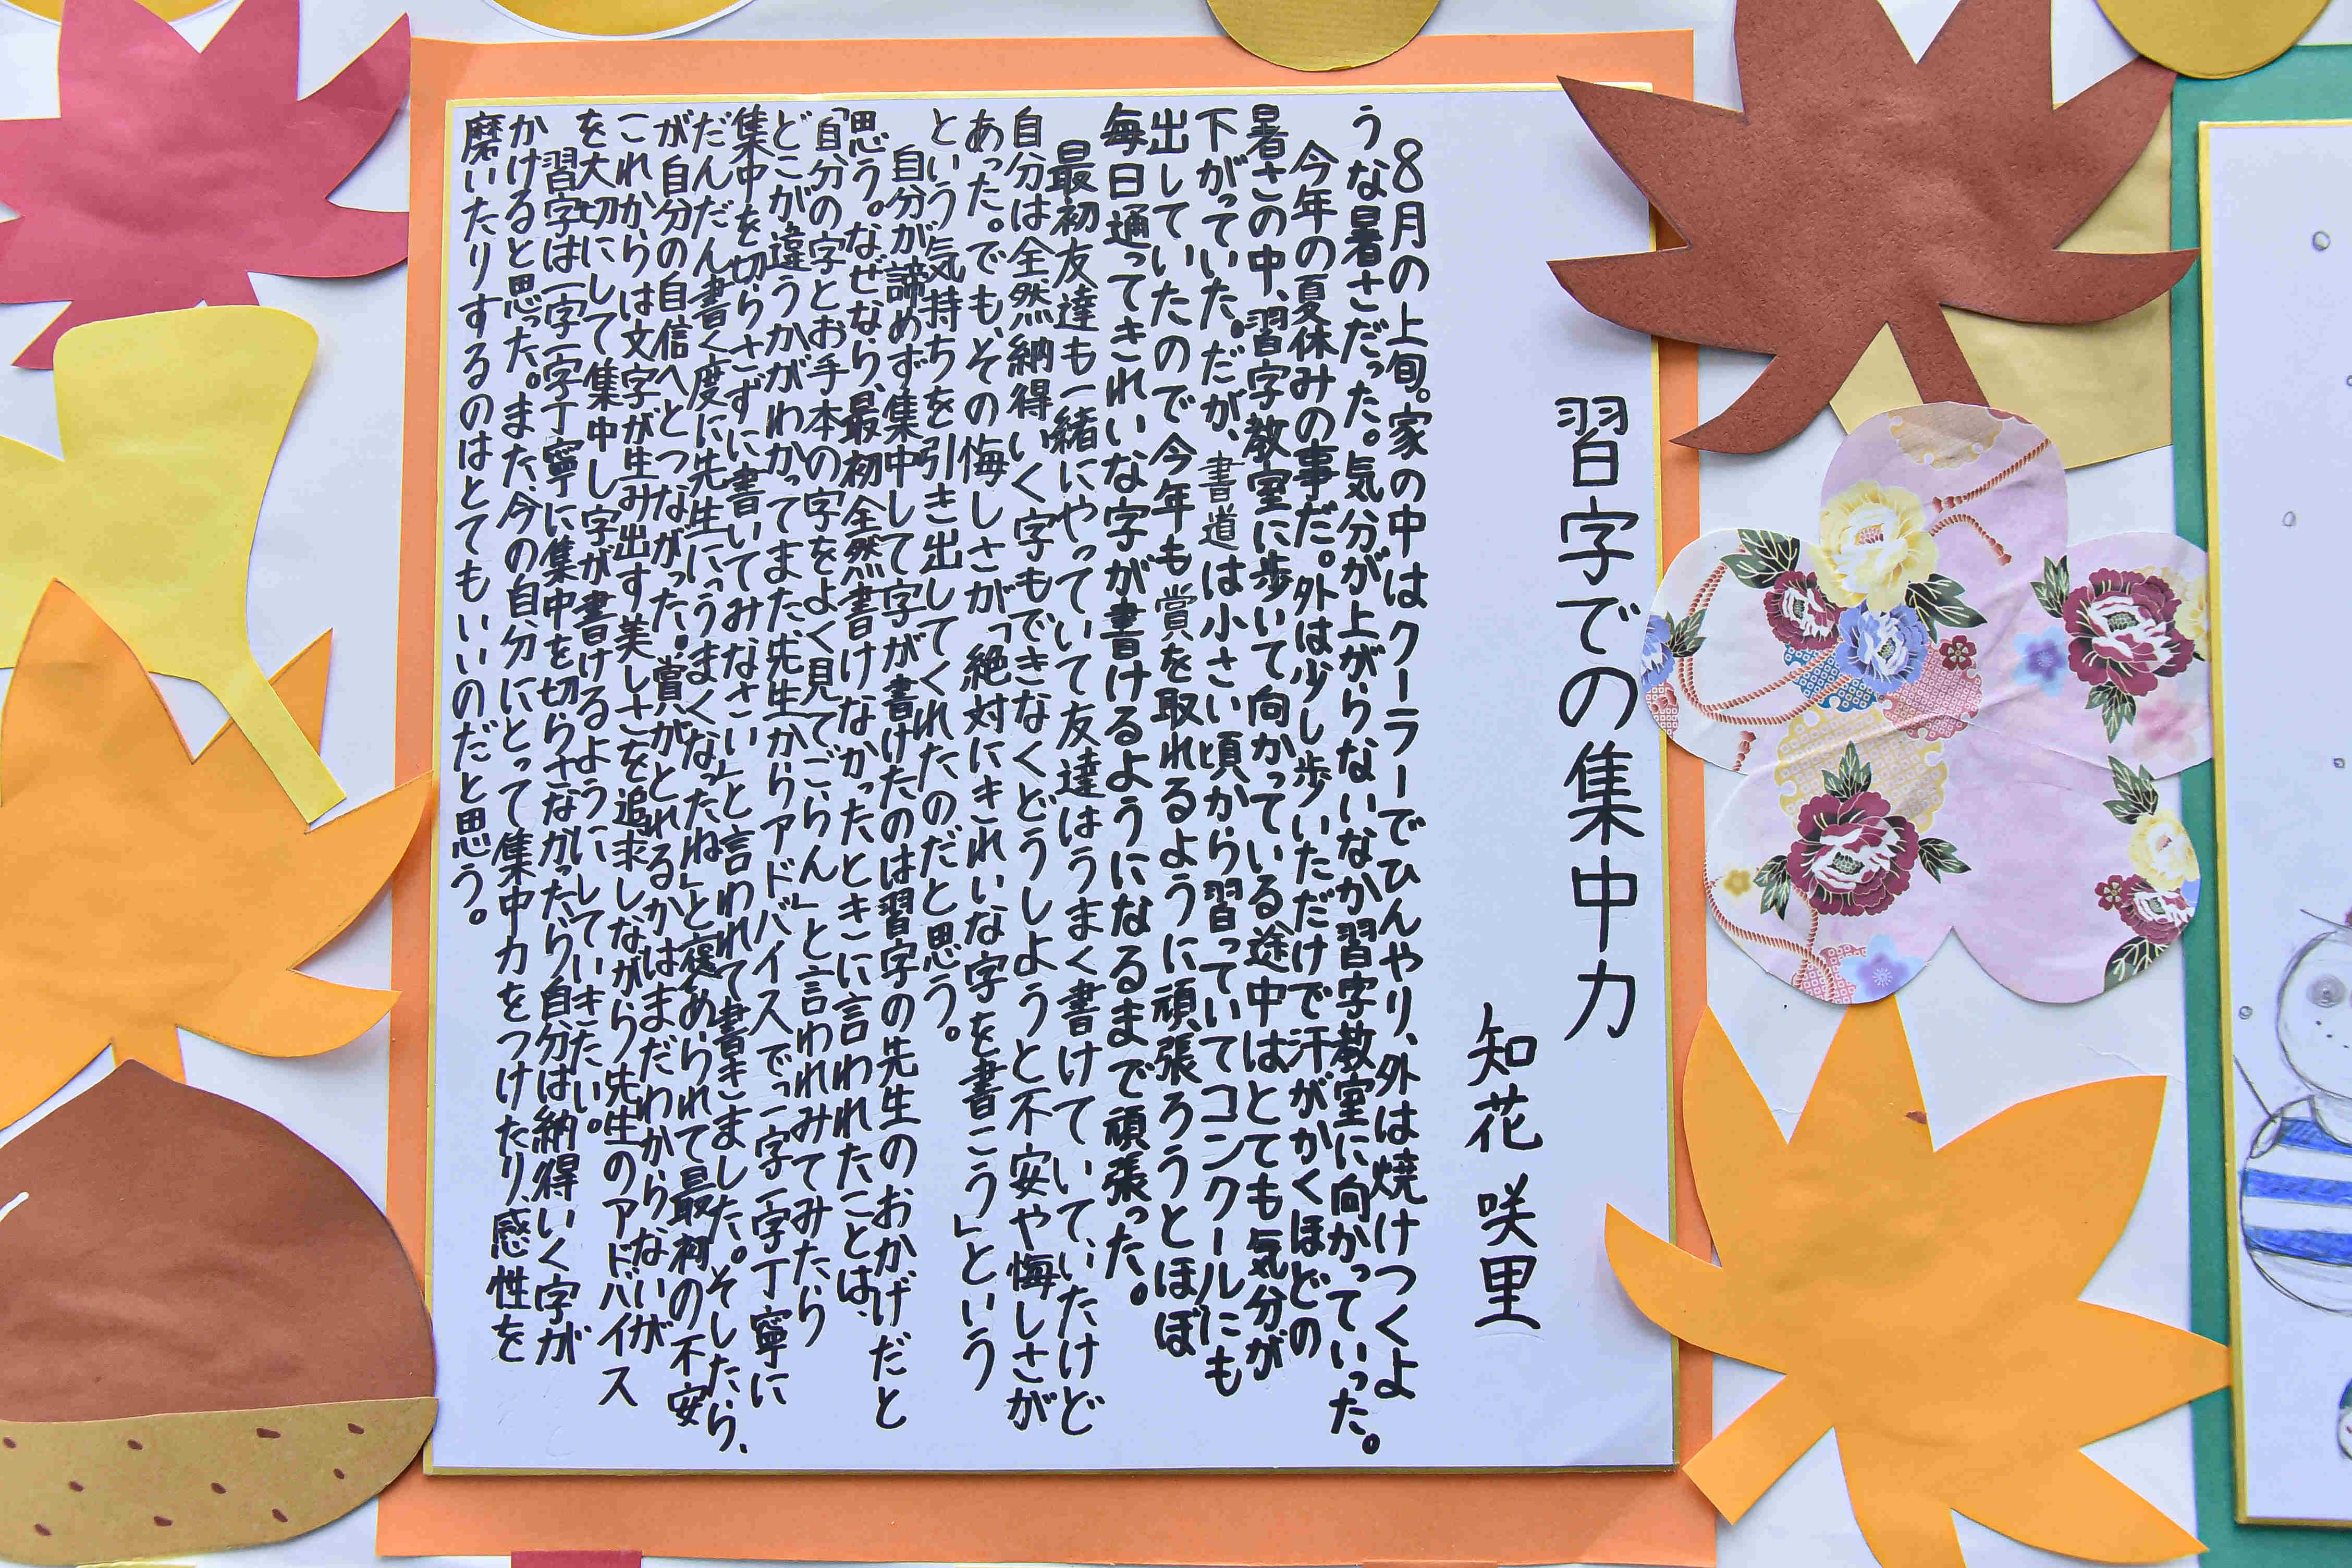 習字での集中力
知花 咲里
8月の上旬。家の中はクーラーでひんやり、外は焼けつくよ
うな暑さだった。気分が上がらないなか習字教室に向かっていった。
今年の夏休みの事だ。外は少し歩いただけで汗がかくほどの
暑さの中、習字教室に歩いて向かっている途中はとても気分が
下がっていた。だが、書道は小さい頃から習っていてコンクールにも
出していたので今年も賞を取れるように頑張ろうとほぼ
毎日通ってきれいな字が書けるようになるまで頑張った。
最初友達も一緒にやっていて友達はうまく書けていて、いたけど
自分は全然納得いく字もできなくどうしようと不安や悔しさが
あった。でも、その悔しさが「絶対にきれいな字を書こう」という
という気持ちを引き出してくれたのだと思う。
自分が諦めず集中して字が書けたのは習字の先生のおかげだと
思う。なぜなら、最初全然書けなかったときに言われたことは、
「自分の字とお手本の字をよく見てごらん」と言われみてみたら
どこが違うかがわかってまた先生からアドバイスでっ一字一字丁寧に
集中を切らさずに書いてみなさい」と言われて書きました。そしたら、
だんだん書く度に先生にっうまくなったね」と褒められて最初の不安
が自分の自信へとつながった。賞がとれるかはまだわからないが
これからは文字が生み出す美しさを追求しながら先生のアドバイス
を大切にして集中し字が書けるようにしていきたい。
習字は一字一字丁寧に集中を切らさなかったら自分は納得いく字が
かけると思った。また、今の自分にとって集中力をつけたり、感性を
磨いたりするのはとてもいいのだと思う。